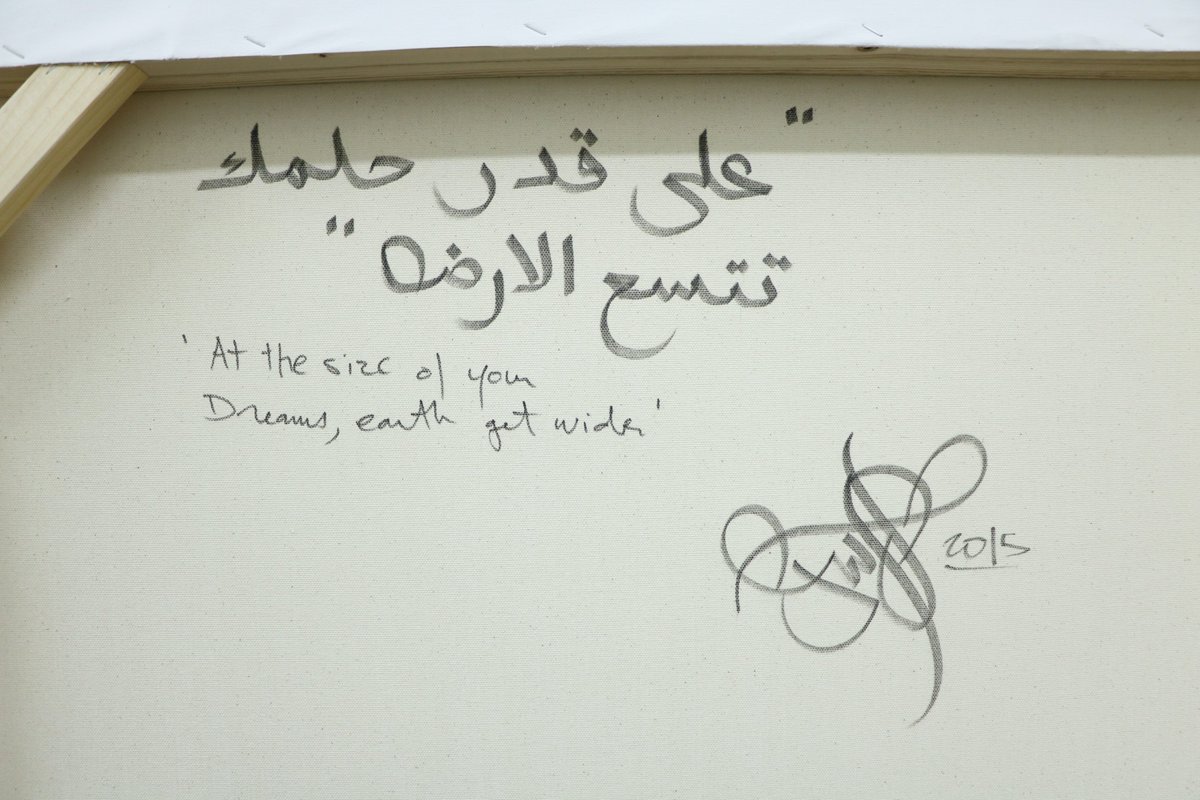 "على قدر حلمك
تتسع الارض"
'At the size of your
Dreams, earth get wider'
2015